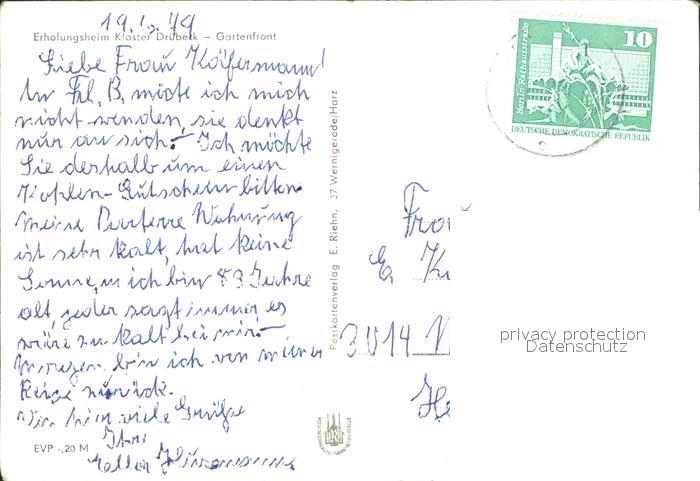 Erholungsheim Kloster Drübeck – Gartenfront
Liebe Frau Käfermann!
An Frl. B. möcte ich mich
nicht wenden, sie denkt
nur an sich! Ich möchte
Sie deshalb um einen
Kohlen-Gutschein bitten.
Meine Parterre Wohnung
ist sehr kalt, hat keine
Sonne, u ich bin 83 Jahre
alt, jeder sagt immer, es
wäre zu kalt bei mir.
Morgen bin ich von meiner
Reise zurück.
viele Grüße
Ihre
EVP -,20 M
Postkartenverlag E. Riehn, 37 Wernigerode/Harz
Berlin/Rathausstraße
10
DEUTSCHE DEMOKRATISCHE REPUBLIK
Frau
E. K
3014
He
privacy protection
Datenschutz